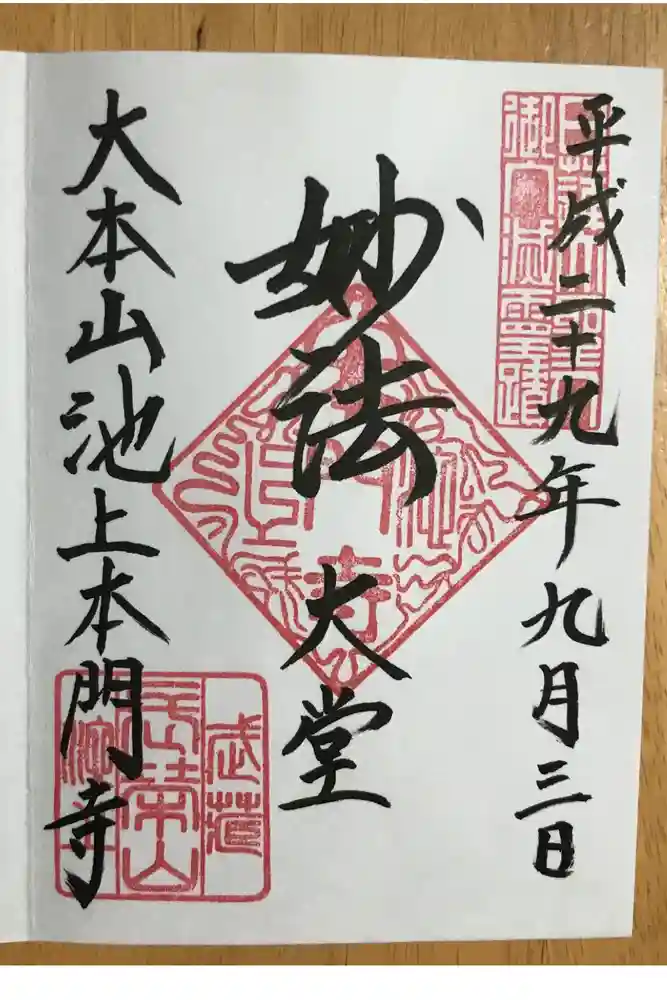 平成二十九年九月三日
妙法
大堂
大本山池上本門寺
日蓮大聖人
御入滅霊蹟
武蔵
長栄山